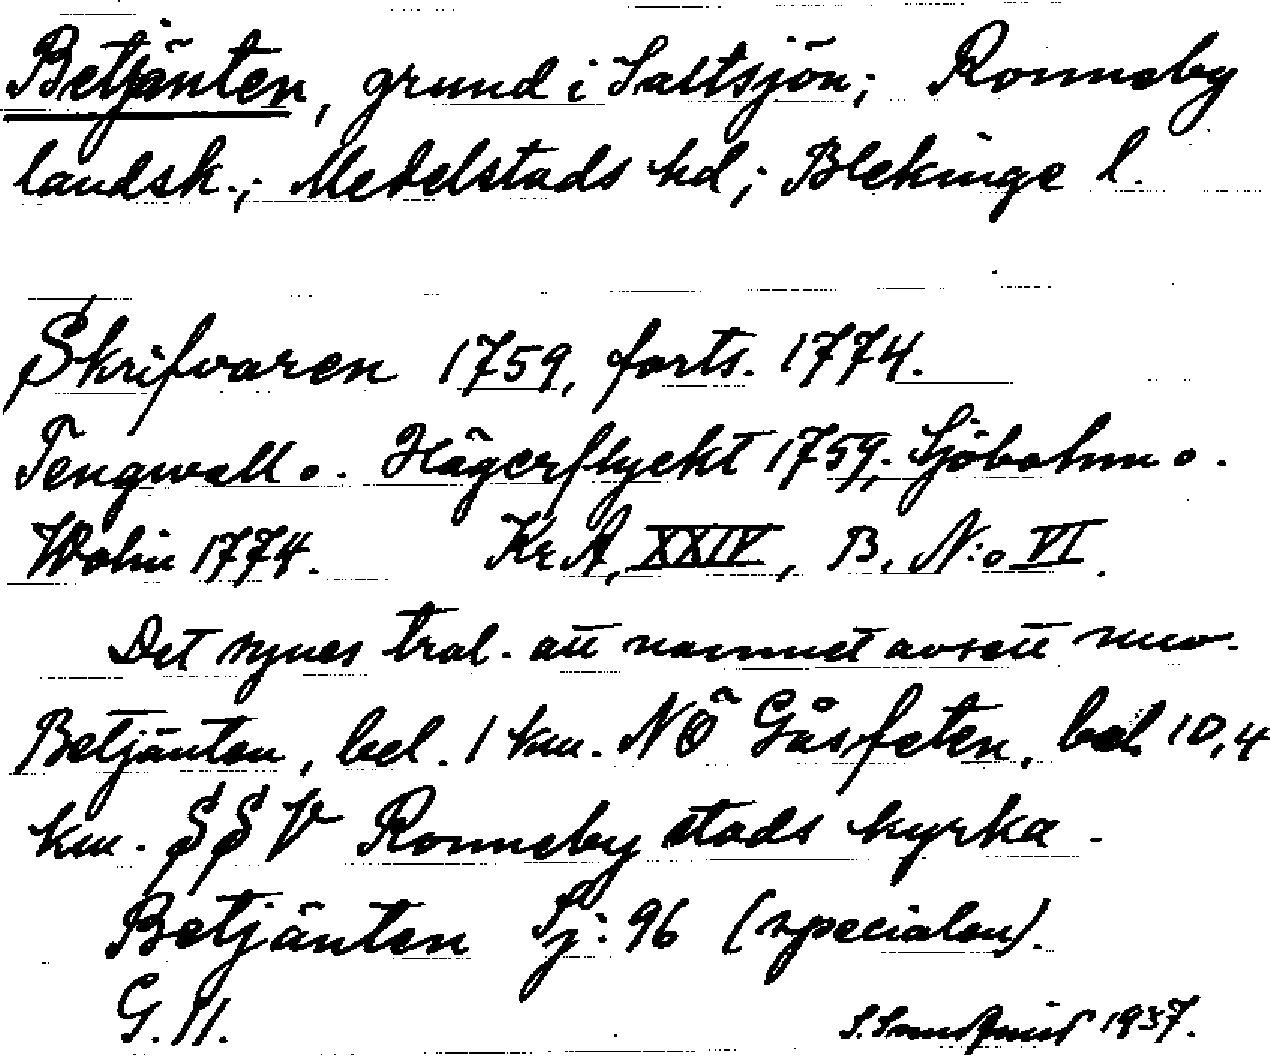 Betjänten, grund i Saltsjön; Ronneby
landsk.; Medelstads hd; Blekinge l.
Skrifvaren 1759, forts. 1774.
Tengwall o. Hägerflyckt 1759; Sjöbohm o.
Wolin 1774. Kr.A. XXIV, B. N:o VI.
Det synes trol. att namnet avsett nuv.
Betjänten, bel. 1 km. NÖ Gåsfeten, bel. 10,4
km. SSV Ronneby stads kyrka.
Betjänten Sj: 96 (specialen).
G. II. 1937.